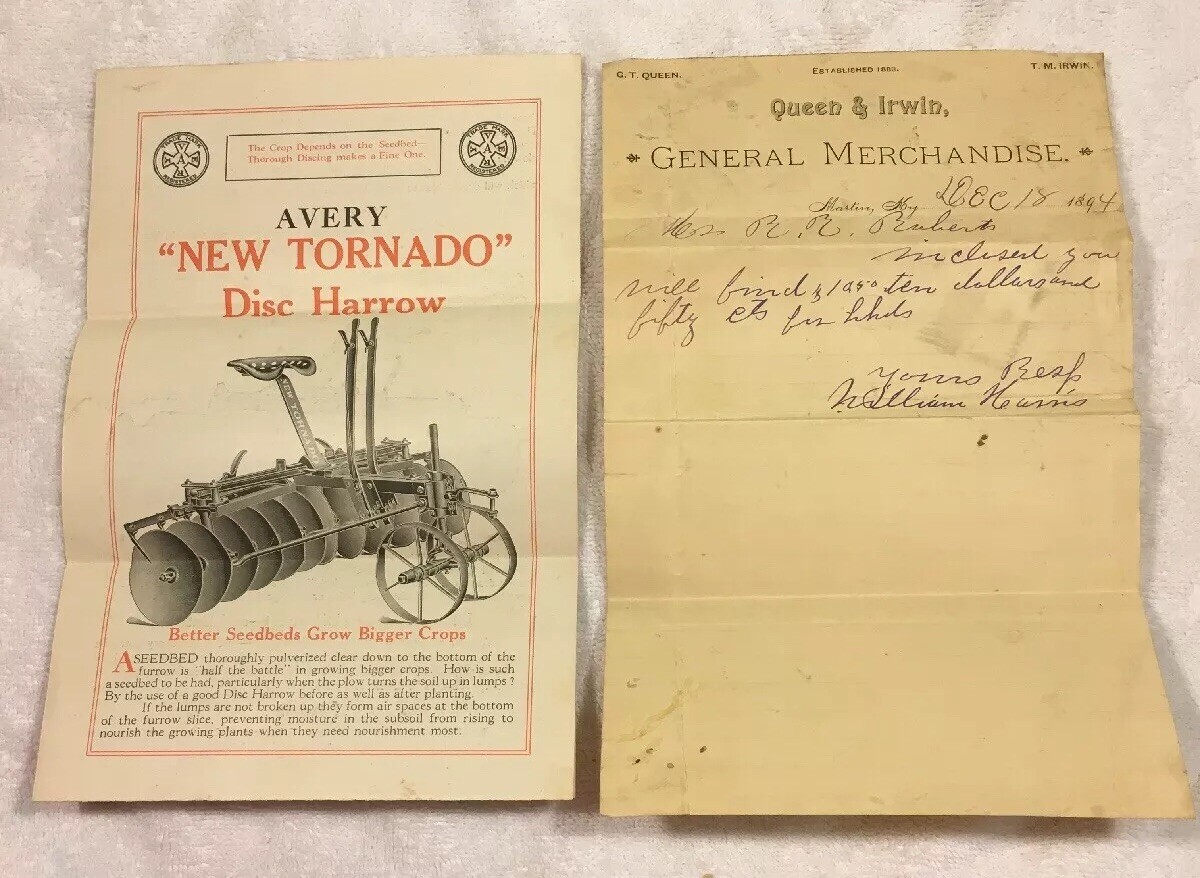 TRADE MARK
AVERY
REGISTERED
The Crop Depends on the Seedbed—
Thorough Discing makes a Fine One.
TRADE MARK
AVERY
REGISTERED
AVERY
"NEW TORNADO"
Disc Harrow
NEW TORNADO
Better Seedbeds Grow Bigger Crops
A SEEDBED thoroughly pulverized clear down to the bottom of the
furrow is "half the battle" in growing bigger crops. How is such
a seedbed to be had, particularly when the plow turns the soil up in lumps?
By the use of a good Disc Harrow before as well as after planting.
If the lumps are not broken up they form air spaces at the bottom
of the furrow slice, preventing moisture in the subsoil from rising to
nourish the growing plants when they need nourishment most.
G. T. QUEEN.
ESTABLISHED 1883.
T. M. IRWIN.
Queen & Irwin,
GENERAL MERCHANDISE.
Martin, Ky. Dec 18 1894
R. R. Roberts
inclosed you
will find $10.50 ten dollars and
fifty cts for hhds
Yours Resp
William Harris